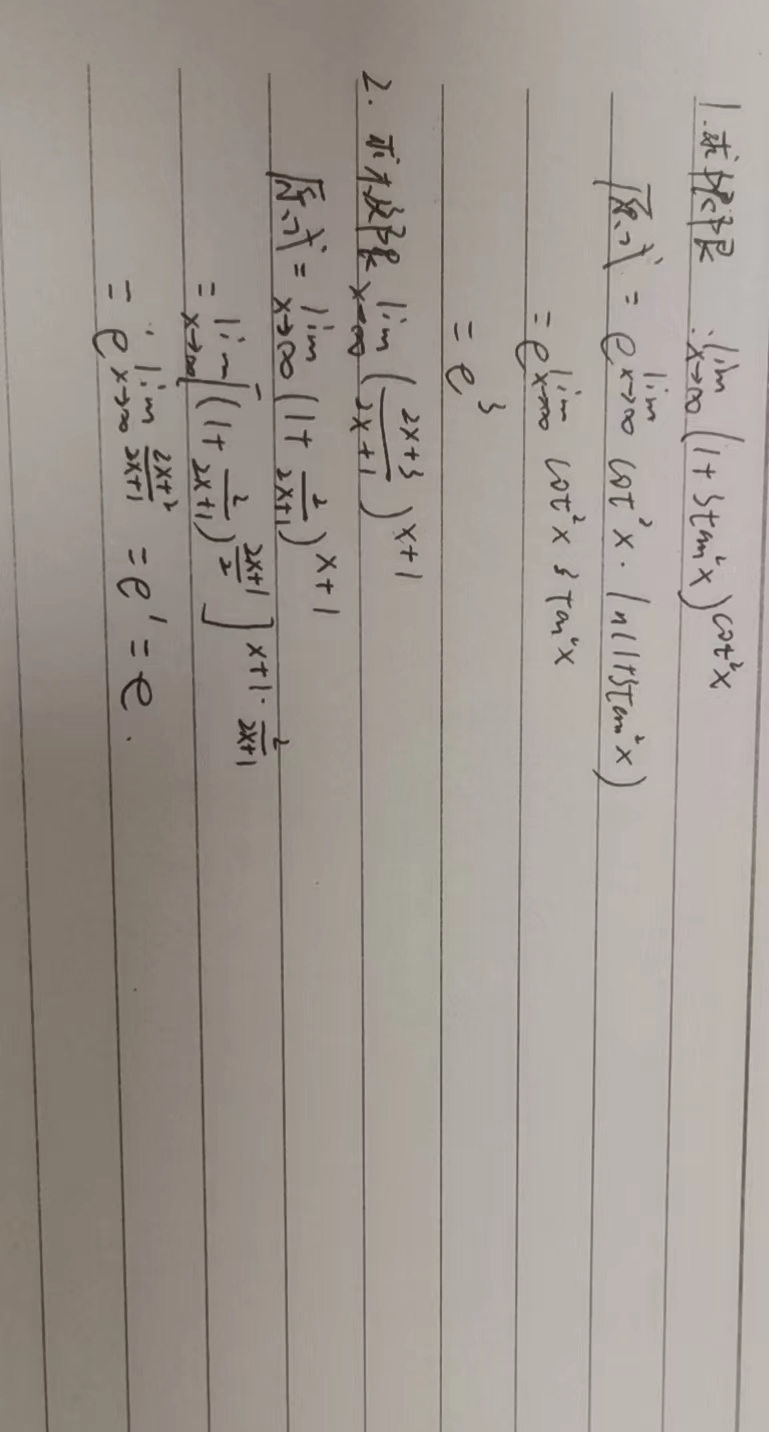 1. 求极限 : lim x→∞ (1+3tan²x)^cot²x
原式 = e^lim x→∞ cot²x · ln(1+3tan²x)
= e^lim x→∞ cot²x 3tan²x
= e³
2. 求极限 lim x→∞ (2x+3/2x+1)^x+1
原式 = lim x→∞ (1+2/2x+1)^x+1
= lim x→∞ [(1+2/2x+1)^2x+1/2]^x+1·2/2x+1
= e^lim x→∞ 2x+2/2x+1 = e¹ = e.